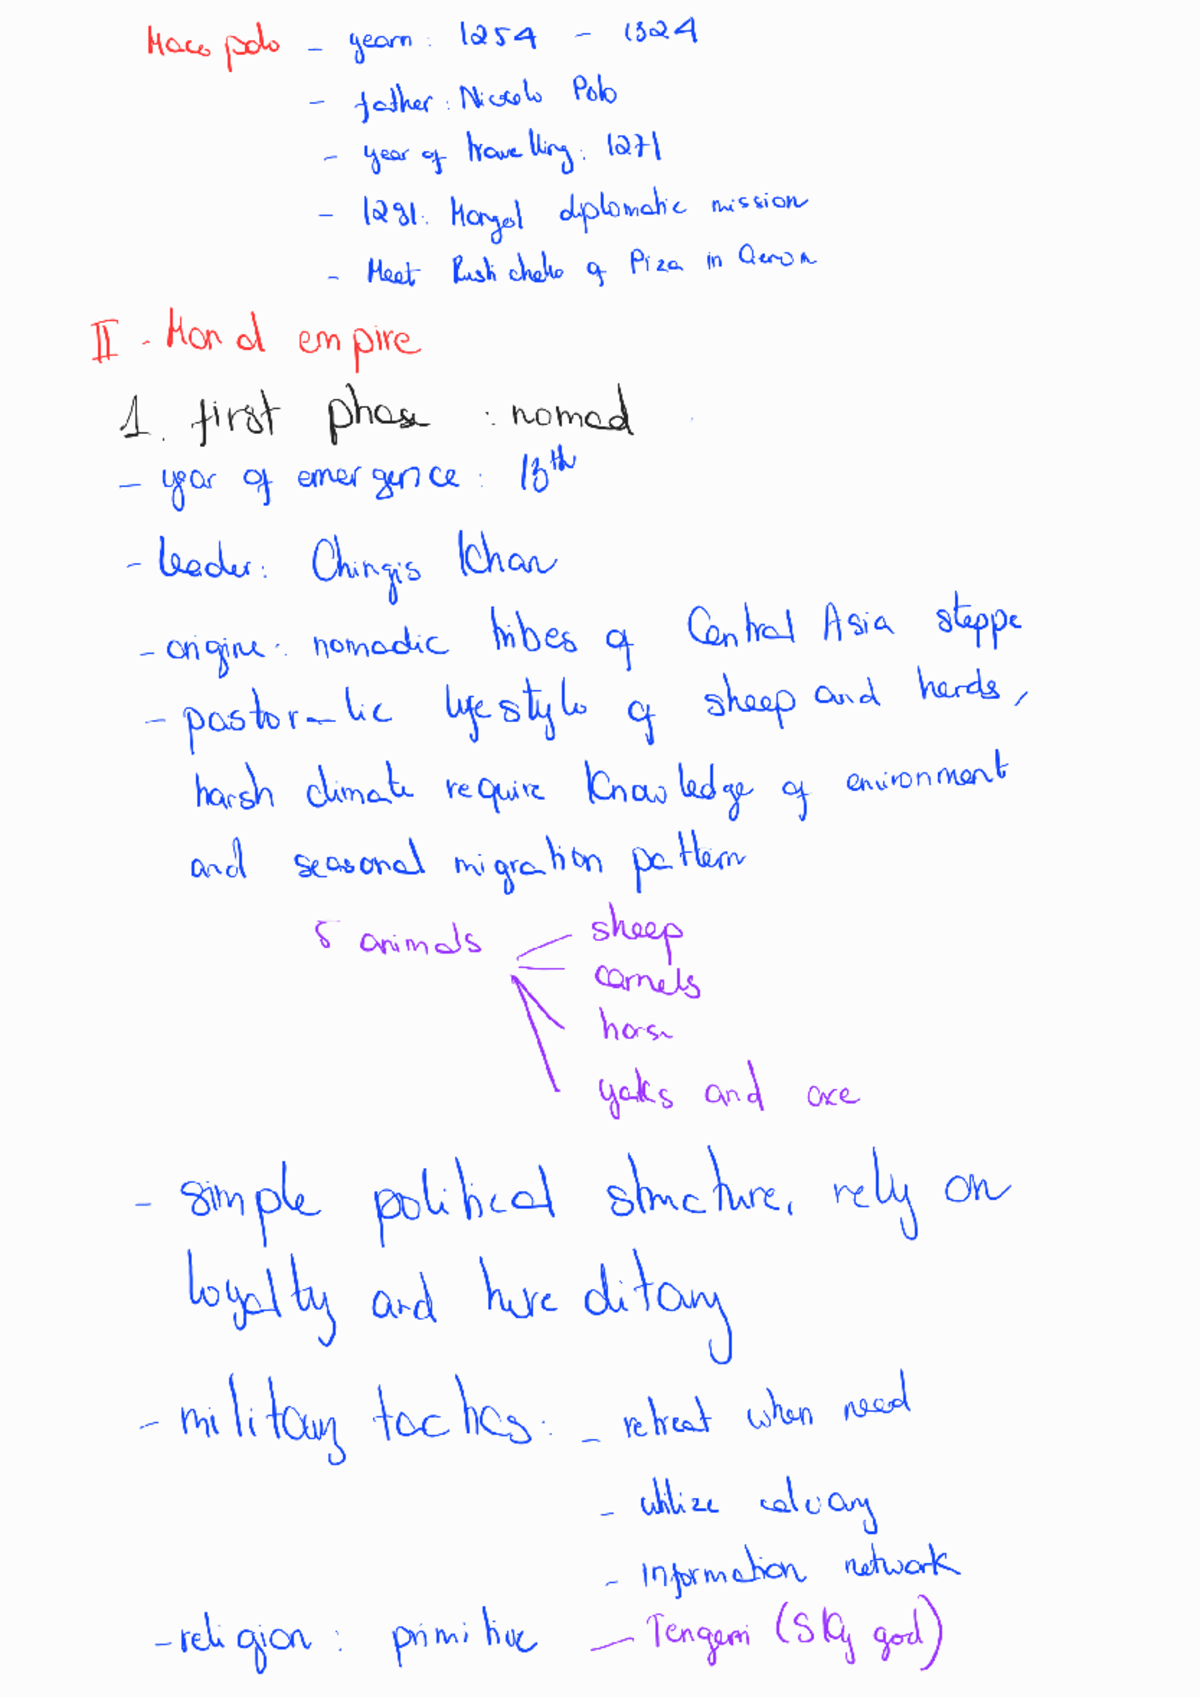 Maco polo - years : 1254 - 1324
- father : Niccolo Polo
- year of travelling : 1271
- 1291 : Mongol diplomatic mission
- Meet Rustichello of Piza in
II - Mongol empire
1. first phase : nomad
- year of emergence : 13th
- leader : Chingis Khan
- origine : nomadic tribes of Central Asia steppe
- pastoralic lifestyle of sheep and herds,
harsh climate require knowledge of environment
and seasonal migration pattern
5 animals
sheep
camels
horse
yaks and oxe
- simple political structure, rely on
loyalty and hereditary
- military tactics : - retreat when need
- utilize calvary
- information network
- religion : primitive — Tengerri (Sky god)